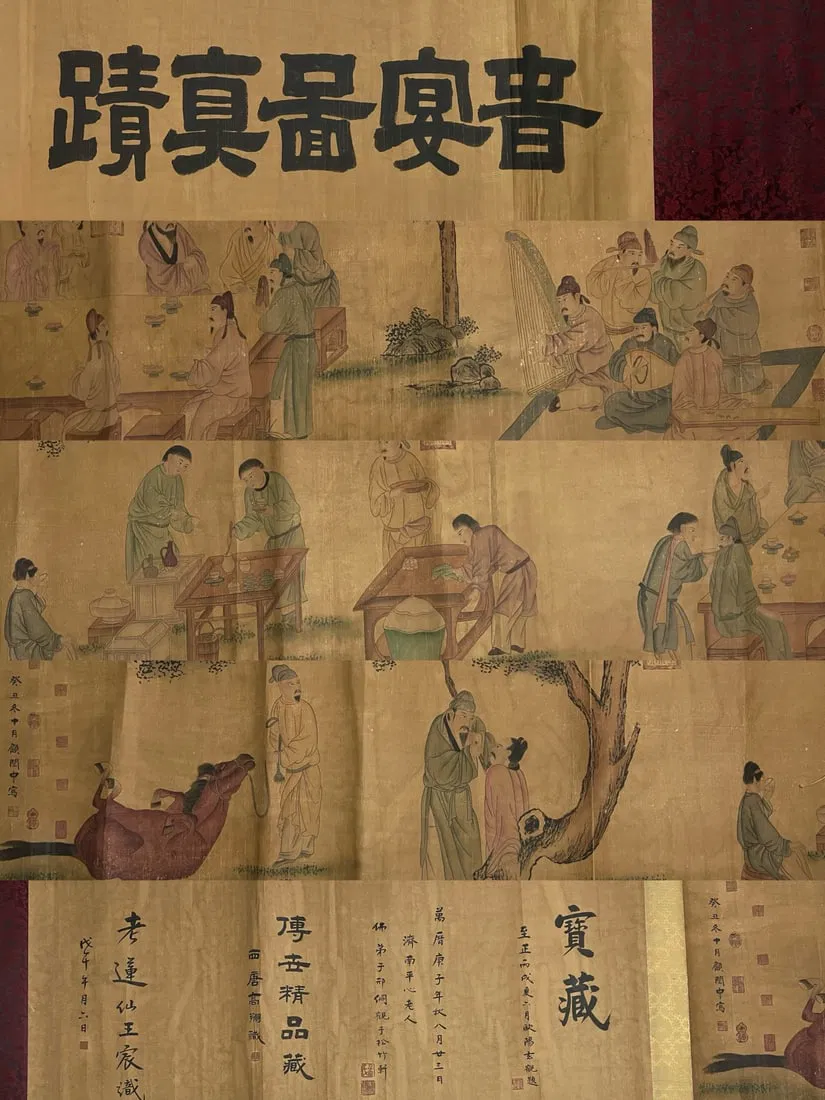 旾宴圖真蹟
癸丑冬中月顧閎中寫
癸丑冬中月顧閎中寫
寶藏
至正丙戌夏二月歐陽玄觀題
萬曆庚子年秋八月廿三日
濟南平心老人
佛弟子邢侗觀于松竹軒
傳世精品藏
西唐高翔識
老蓮仙王宸識
戊午年月六日